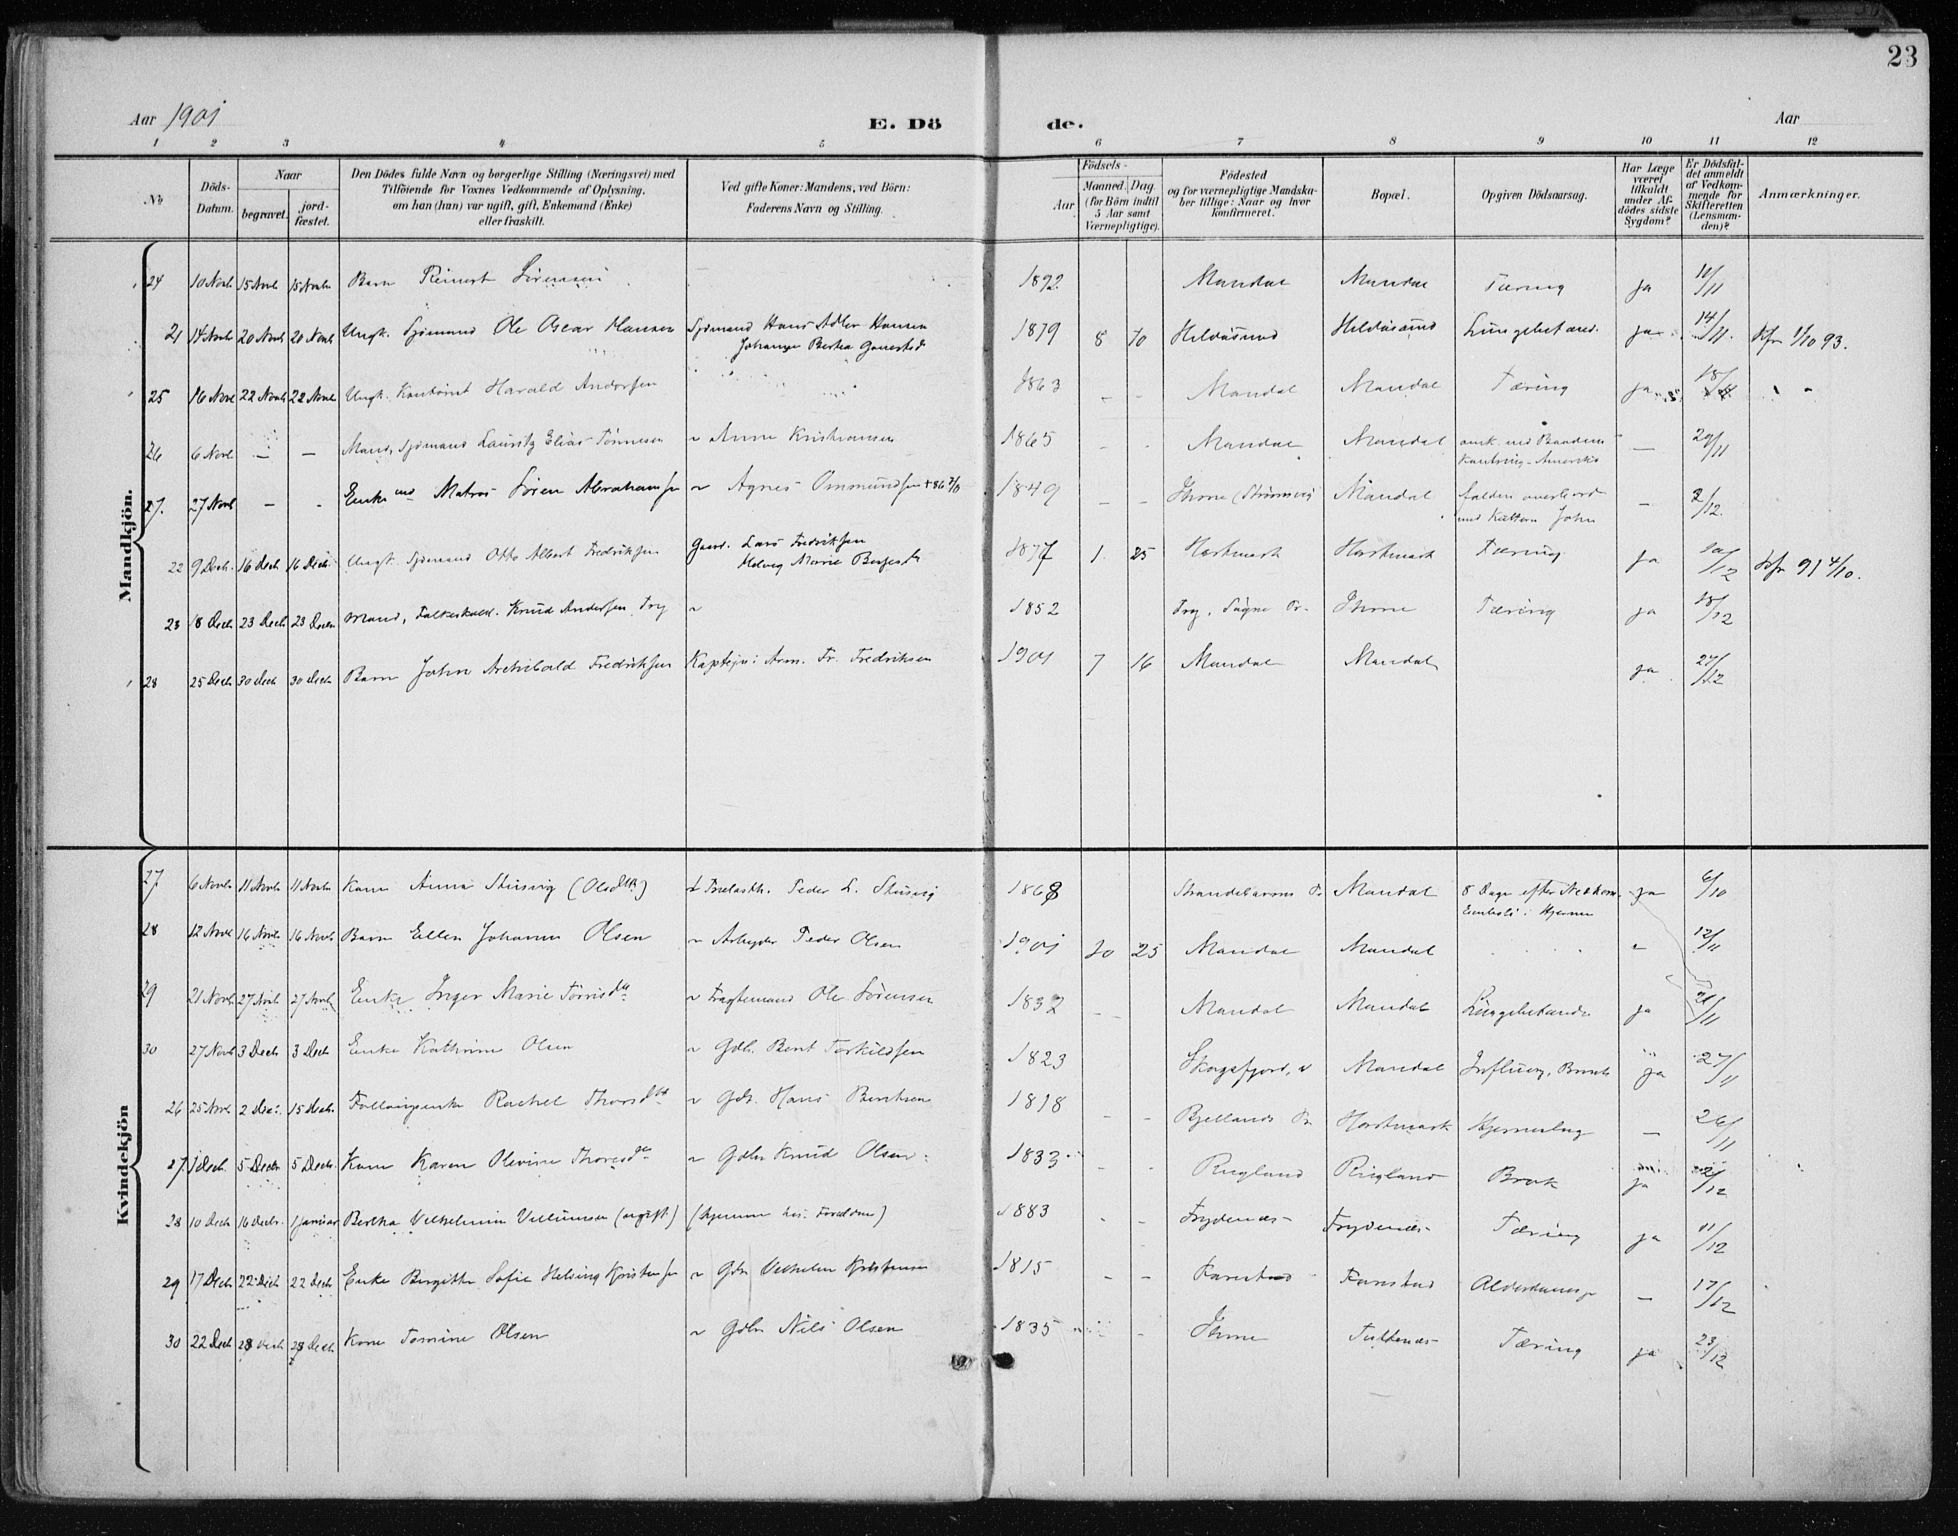 23
Aar 1901
E. Dö de.
Aar
1 2 3 4 5 6 7 8 9 10 11 12
No
Döds-Datum.
Naar
begravet.
jord-fæstet.
Den Dödes fulde Navn og borgerlige Stilling (Næringsvei) med
Tilföiende for Voxnes Vedkommende af Oplysning,
om han (hun) var ugift, gift, Enkemand (Enke)
eller fraskilt.
Ved gifte Koner: Mandens, ved Börn:
Faderens Navn og Stilling.
Födsels-
Aar
Maaned. Dag
(for Börn indtil
5 Aar samt
Værnepligtige).
Födested
og for værnepligtige Mandska-
ber tillige: Naar og hvor
konfirmeret.
Bopæl.
Opgiven Dödsaarsag.
Har Læge
været
tilkaldt
under Af-
dödes sidste
Sygdom?
Er Dödsfal-
det anmeldt
af Vedkom-
mende for
Skifteretten
(Lensman-
den)?
Anmærkninger.
Mandkjön.
24 10 Novb 15 Novb 15 Novb Barn Reinert Sörensen 1892 Mandal Mandal Tæring ja 10/11
21 14 Novb 20 Novb 20 Novb Ungk. Sjömand Ole Oscar Hansen Sjömand Hans Adler Hansen 1879 8 10 Hildøsund Hildøsund Lungebetænd. ja 14/11. Kfr 1/10 93.
Johanne Bertea
25 16 Novb 22 Novb 22 Novb Ungk. Harald Andersen 1863 - - Mandal Mandal Tæring ja
26 6 Novb - - Mand, Sjömand Lauritz Elias Tönnesen Anne Kristiansen 1865 - - Mandal Mandal - 29/11
Amerika
27. 27 Novb - - Enkemd Matros Sören Abrahamsen Agnes Ommundsen 1849 - - Ihme Mandal falden overbord - 2/12.
med Kuttern John
22 9 Decb. 16 Decb 16 Decb Ungk. Sjömand Otto Albert Fredriksen Gaard. Lars Fredriksen 1877 1. 25 Hartmark Hartmark Tæring ja 10/12 Kfr 91 4/10.
Marie
23 18 Decb 23 Decb 23 Decb Mand, Knud Andersen Try 1852 Try, Søgne Pr. Ihme Tæring ja 18/12
28 25 Decb 30 Decb 30 Decb Barn John Archibald Fredriksen Kaptejn Arm. Fr. Fredriksen 1901 7 16 Mandal Mandal ja 27/12
Kvindekjön
27. 6 Novb 11 Novb 11 Novb Kone Anna (Olsdtr) Peder L. 1868 Mandal 8 Dage efter Nedkom. ja 6/10
Hjernen
28 12 Novb 16 Novb 16 Novb Barn Ellen Johanne Olsen Arbejder Peder Olsen 1901 10 25 Mandal Mandal 12/11
29 21 Novb 27 Novb 27 Novb Enke Inger Marie Tönnisdtr Fragtemand Ole Sörensen 1832 - - Mandal Mandal Lungebetænd. ja 21/11
30 27 Novb 3 Decb 3 Decb Enke Kathrine Olsen Gdb. Bent Torkildsen 1823 Skogsfjord, Mandal ja 27/11
26 25 Novb 2 Dec. 15 Decb Rachel Thorsdtr Gdb. Hans Bentsen 1818 - - Bjellands Pr. Hartmark - 26/11
27. 1 Decb. 5 Decb 5 Decb. Kone Karen Olevine Thoresdtr Gdbr Knud Olsen 1833 - - Rugland Rugland Brok ja 2/12
28 10 Decb 16 Decb. 1 Januar Bertha Vilhelmine Villumsen (ugift.) (hjemme hos Forældrene) 1883 - - Frydenæs Frydenæs Tæring ja 11/12
29 17 Decb 22 Decb 22 Decb Enke Birgitte Sofie Kristensen Gdbr Vilhelm Kristensen 1815 - - Farestad Farestad - 17/12
30 22 Decb 28 Decb 28 Decb Kone Tomine Olsen Gdbr Nils Olsen 1835 - Ihme Tæring ja 23/12